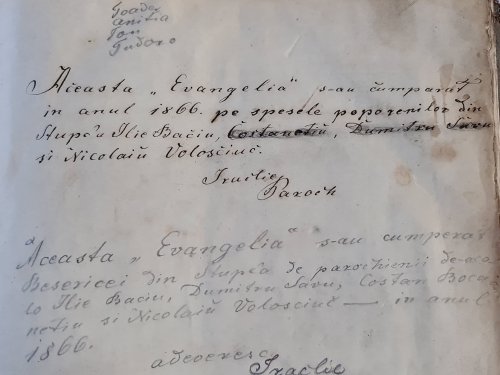 Toader
anitia
Ion
Tudoro
Aceasta „Evangelia" s-au cumparat
in anul 1866. pe spesele poporenilor din
Stupca Ilie Baciu, Costanotiu, Dumitru Savu
si Nicolaiŭ Volosciuc.
Iraclie
Paroch
Aceasta „Evangelia" s-au cumperat
Besericei din Stupca de parochienii de-aco
lo Ilie Baciu, Dumitru Savu, Costan Boca
notiu si Nicolaiŭ Volosciuc — in anul
1866.
adeveresc
Iraclie